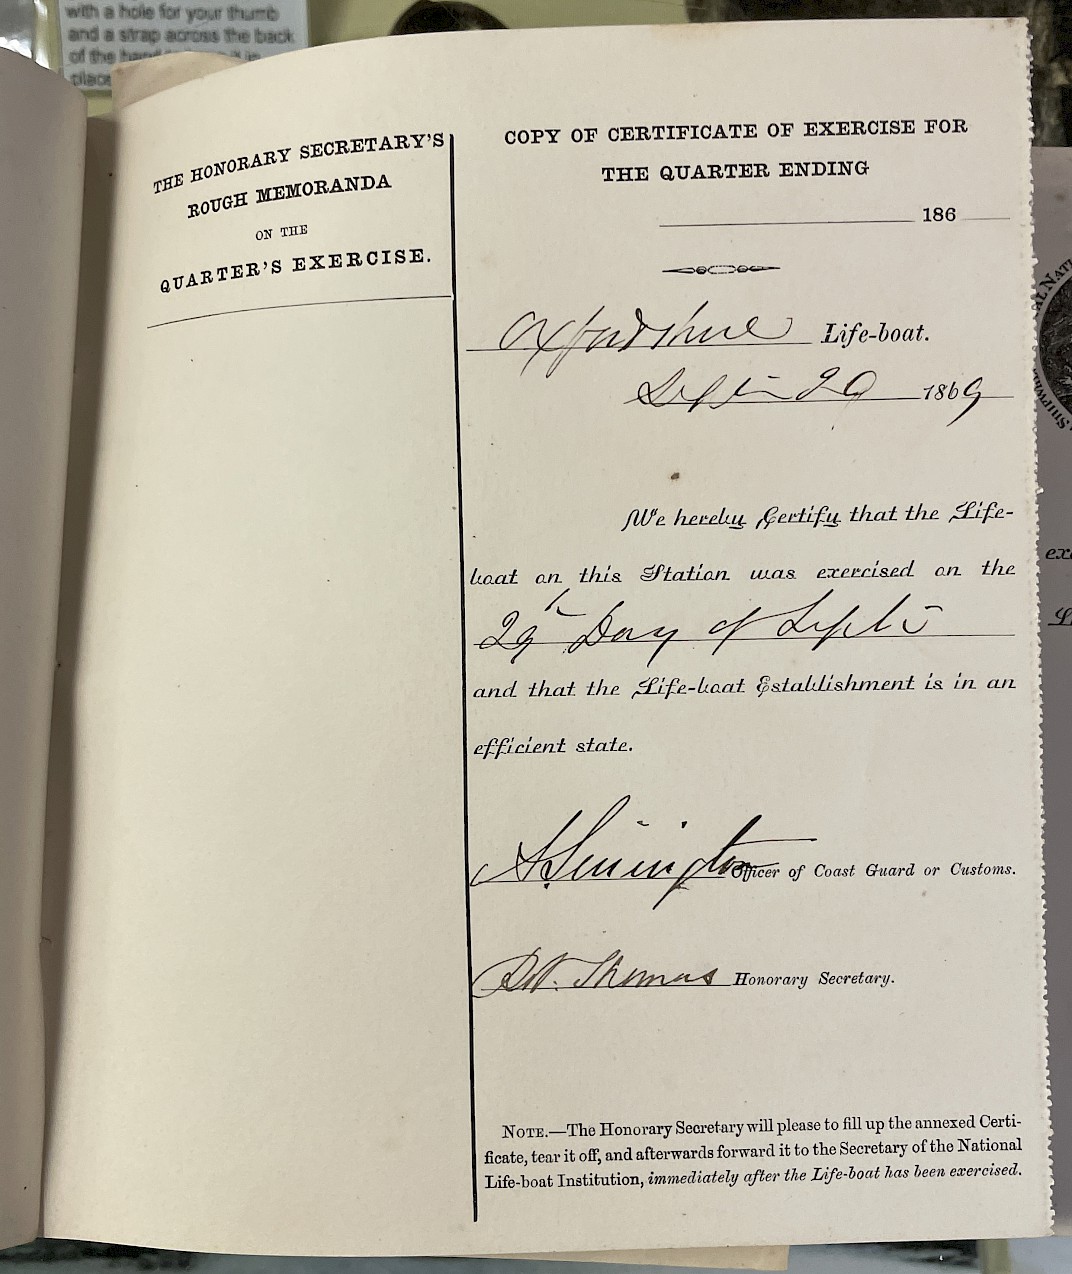 with a hole for your thumb
and a strap across the back
of the
THE HONORARY SECRETARY'S
ROUGH MEMORANDA
ON THE
QUARTER'S EXERCISE.
COPY OF CERTIFICATE OF EXERCISE FOR
THE QUARTER ENDING
186
Oxfordshire Life-boat.
29 1869
We hereby Certify that the Life-
boat on this Station was exercised on the
29th Day of
and that the Life-boat Establishment is in an
efficient state.
Officer of Coast Guard or Customs.
Thomas Honorary Secretary.
NOTE.—The Honorary Secretary will please to fill up the annexed Certi-
ficate, tear it off, and afterwards forward it to the Secretary of the National
Life-boat Institution, immediately after the Life-boat has been exercised.